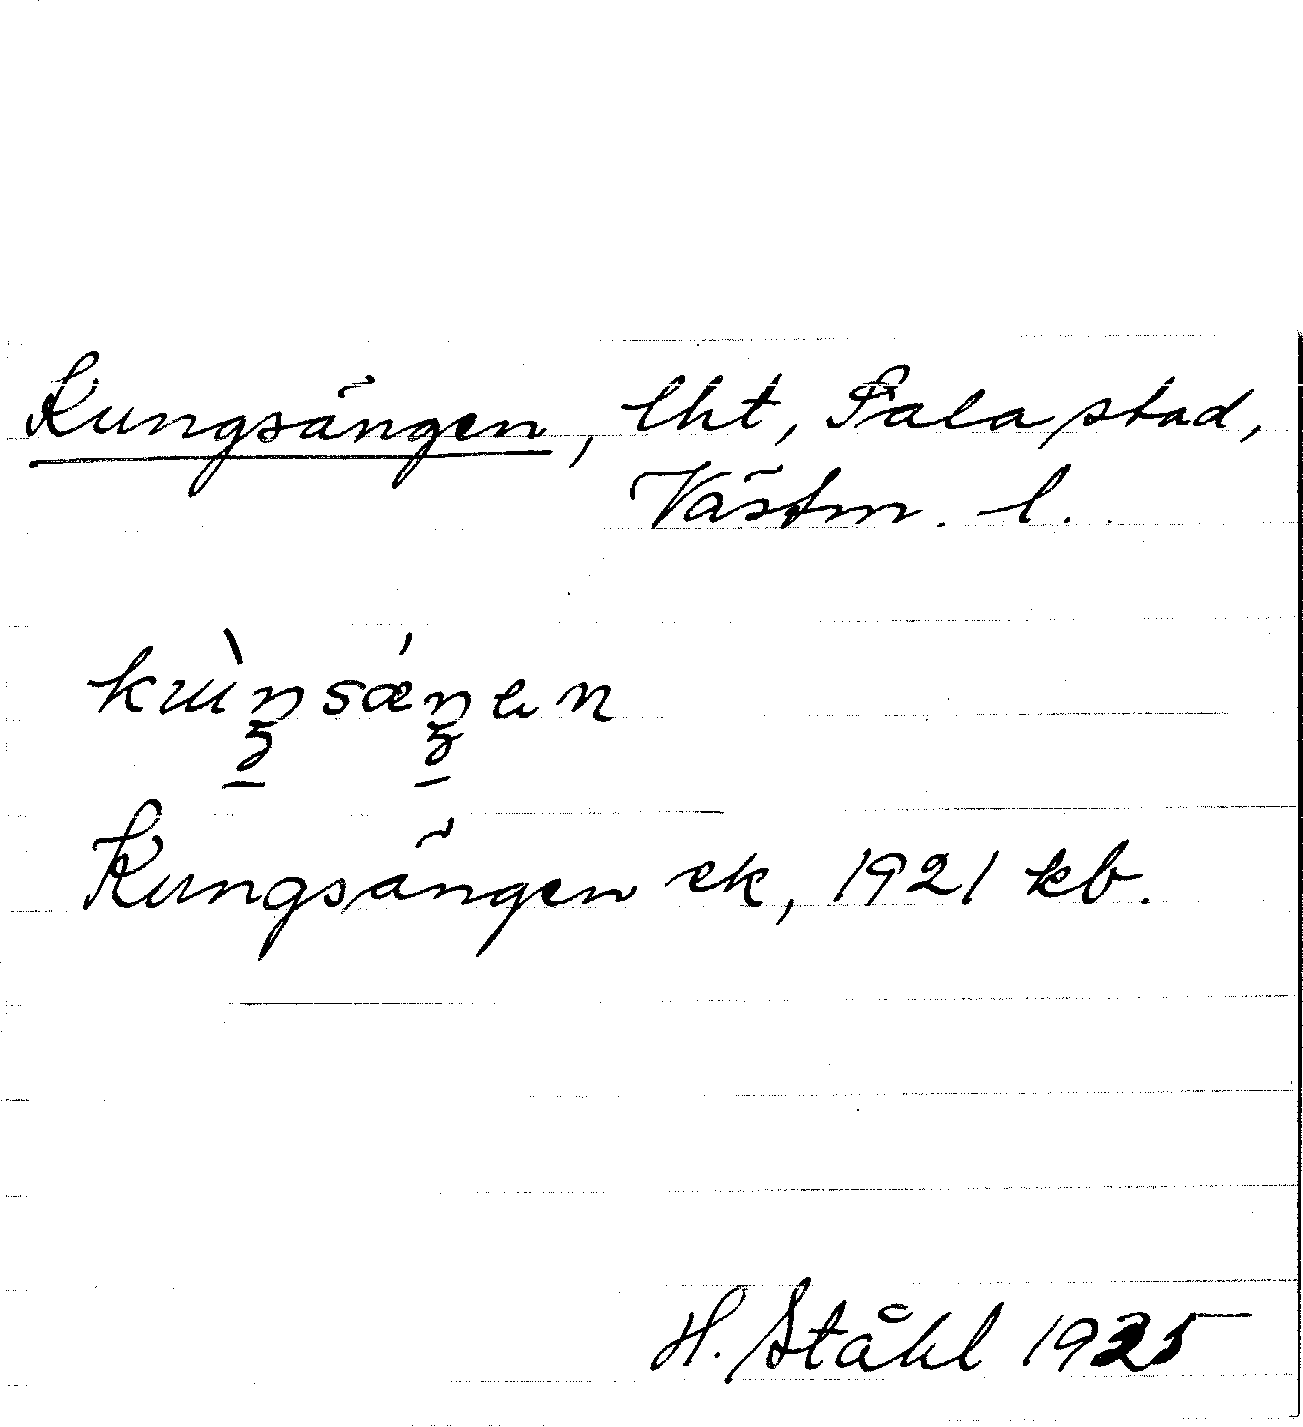 Kungsängen, lht, Sala stad,
Västm. l.
kuŋ̀sǽŋən
Kungsängen ek, 1921 kb.
H. Ståhl 1935